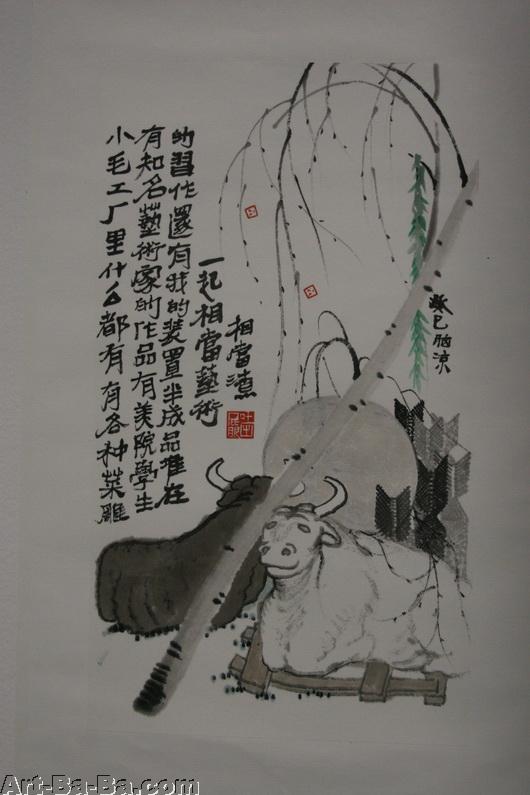 小毛工厂里什么都有有各种菜雕
有知名藝術家的作品有美院學生
的習作還有我的裝置半成品堆在
一起相當藝術
相當渣
癸巳
Art-Ba-Ba.com
Art-Ba-Ba.com